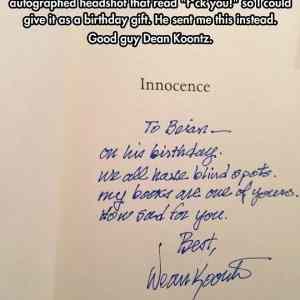 autographed headshot that read "F*ck you!" so I could
give it as a birthday gift. He sent me this instead.
Good guy Dean Koontz.
Innocence
To Brian—
on his birthday.
We all have blind spots.
my books are one of yours.
How sad for you.
Best,
Dean Koontz